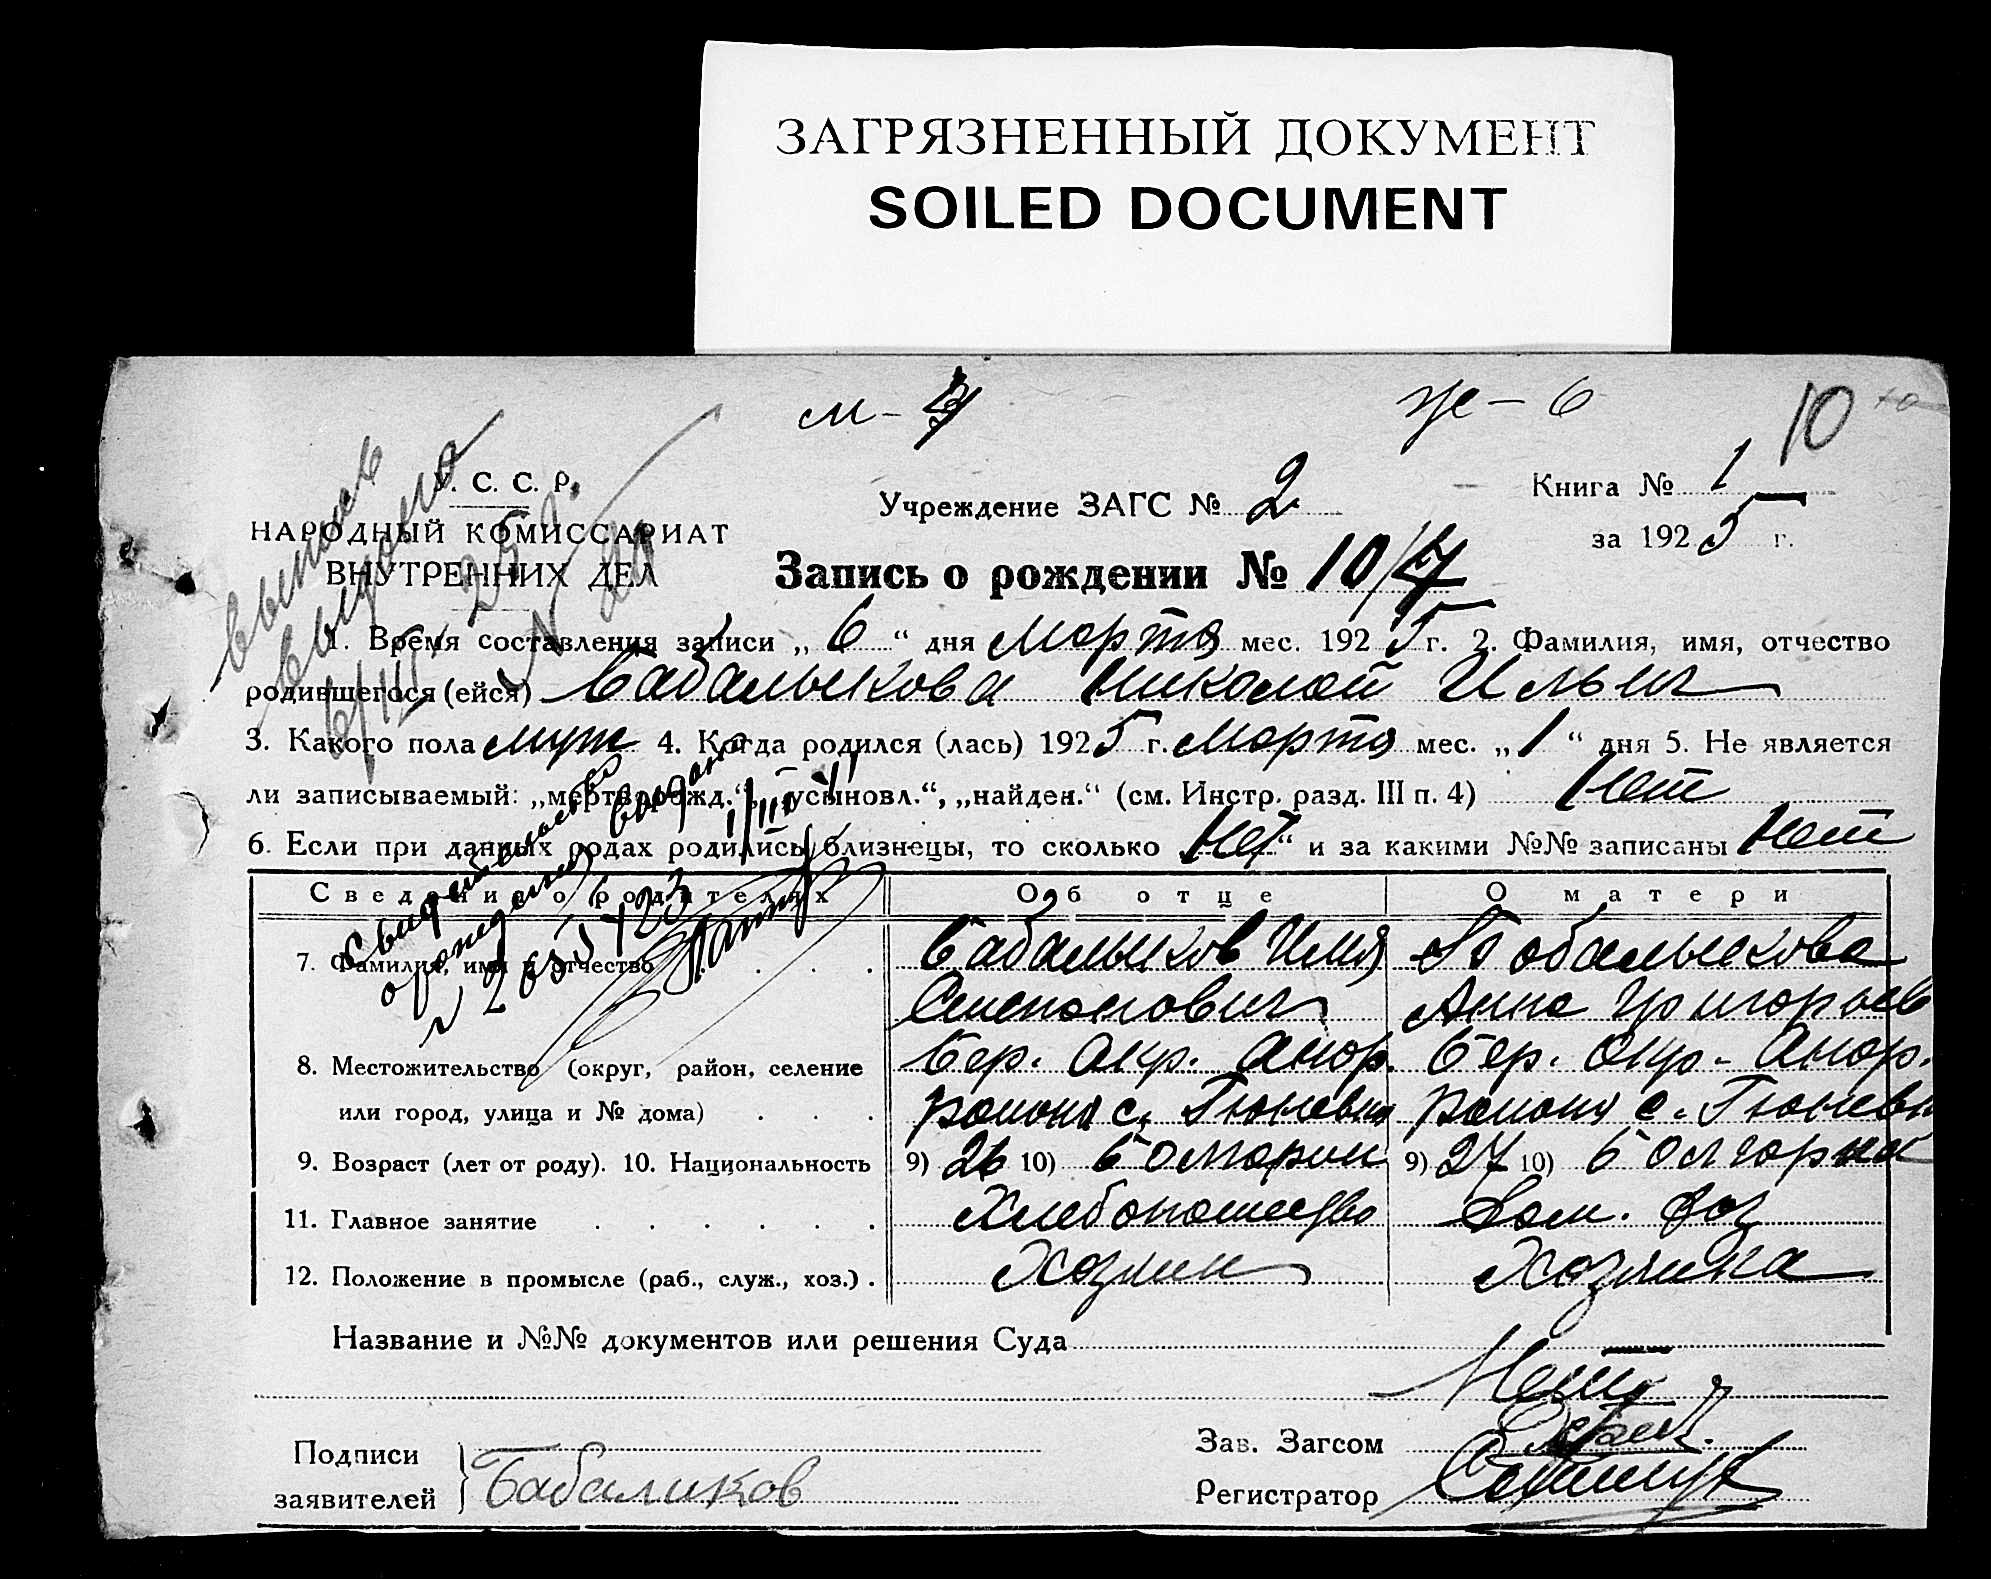 ЗАГРЯЗНЕННЫЙ ДОКУМЕНТ
SOILED DOCUMENT
м - ж - 6 10
У. С. С. Р.
НАРОДНЫЙ КОМИССАРИАТ
ВНУТРЕННИХ ДЕЛ
Учреждение ЗАГС № 2
Книга № 1
за 1925 г.
Запись о рождении № 10/4
1. Время составления записи „ 6 “ дня Марта мес. 1925 г. 2. Фамилия, имя, отчество
родившегося (ейся) Бабалыкова Николай Ильич
3. Какого пола муж 4. Когда родился (лась) 1925 г. Марта мес. „ 1 “ дня 5. Не является
ли записываемый: „мертворожд.“, „усыновл.“, „найден.“ (см. Инстр. разд. III п. 4) Нет
6. Если при данных родах родились близнецы, то сколько Нет “ и за какими №№ записаны Нет
Сведения о родителях Об отце О матери
7. Фамилия, имя и отчество . . . Бабалыков Илия Бабалыкова
Степанович Анна Григорьев
8. Местожительство (округ, район, селение Бер. Окр. Андр. Бер. Окр. Андр.
или город, улица и № дома) . . . района с. Гюневка района с. Гюневк
9. Возраст (лет от роду). 10. Национальность 9) 26 10) болгарин 9) 27 10) болгарка
11. Главное занятие . . . . . . Хлебопашество Дом. хоз
12. Положение в промысле (раб., служ., хоз.) . Хозяин Хозяйка
Название и №№ документов или решения Суда
Нет
Подписи
заявителей } Бабаликов
Зав. Загсом
Регистратор
Свидетельство
о рождении выдано